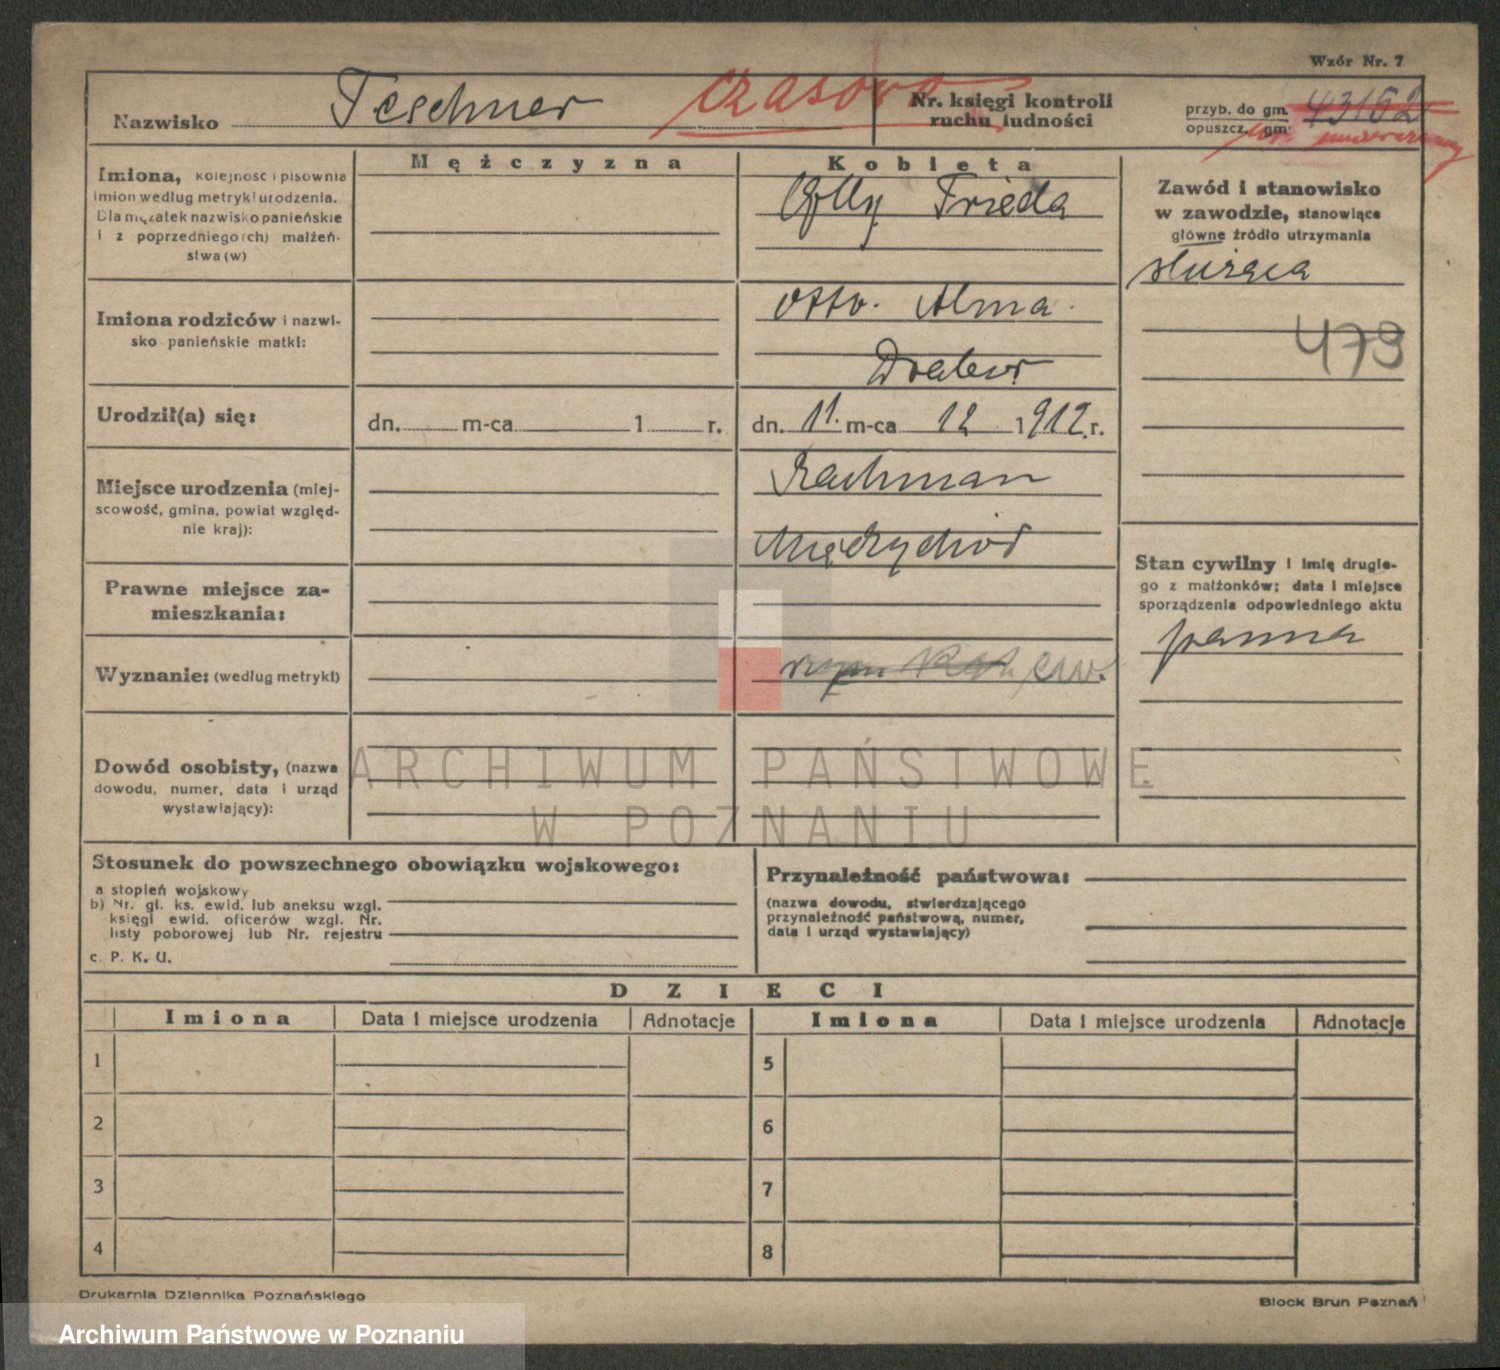 Wzór Nr. 7
Nazwisko Teschner czasowo
Nr. księgi kontroli
ruchu ludności
przyb. do gm. 43152
opuszcz. gm.
Mężczyzna
Kobieta
Imiona, kolejność i pisownia
imion według metryki urodzenia.
Dla mężatek nazwisko panieńskie
i z poprzedniego(ch) małżeń-
stwa (w)
Elly Frieda
Zawód i stanowisko
w zawodzie, stanowiące
główne źródło utrzymania
służąca
Imiona rodziców i nazwi-
sko panieńskie matki:
Otto. Alma.
479
Urodził(a) się:
dn. m-ca 1 r.
dn. 11. m-ca 12 1912.r.
Miejsce urodzenia (miej-
scowość, gmina, powiat względ-
nie kraj):
Międzychód
Stan cywilny i imię drugie-
go z małżonków; data i miejsce
sporządzenia odpowiedniego aktu
panna
Prawne miejsce za-
mieszkania:
Wyznanie: (według metryki)
rzym. kat. ew.
Dowód osobisty, (nazwa
dowodu, numer, data i urząd
wystawiający):
ARCHIWUM PAŃSTWOWE
W POZNANIU
Stosunek do powszechnego obowiązku wojskowego:
a stopień wojskowy
b) Nr. gł. ks. ewid. lub aneksu wzgl.
księgi ewid. oficerów wzgl. Nr.
listy poborowej lub Nr. rejestru
c. P. K. U.
Przynależność państwowa:
(nazwa dowodu, stwierdzającego
przynależność państwową, numer,
data i urząd wystawiający)
DZIECI
Imiona Data i miejsce urodzenia Adnotacje Imiona Data i miejsce urodzenia Adnotacje
1 5
2 6
3 7
4 8
Drukarnia Dziennika Poznańskiego
Block Brun Poznań
Archiwum Państwowe w Poznaniu